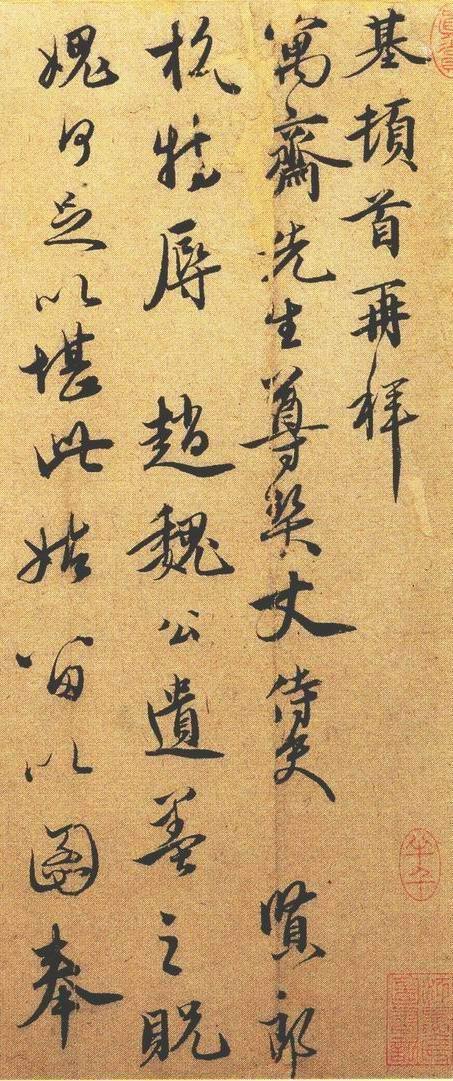 基頓首再拜
寓齋先生尊契丈侍史　賢郎
杭特辱　趙魏公遺墨之貺
媿何足以堪此姑留以圖奉